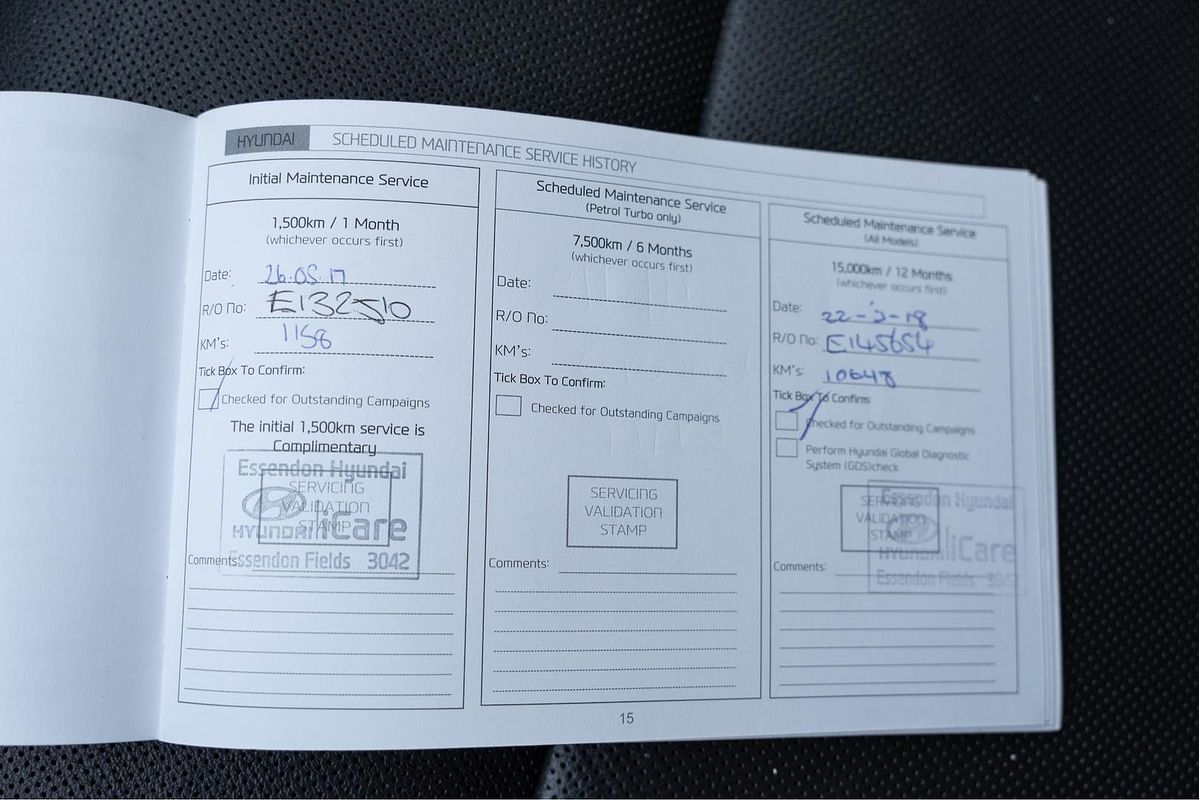 HYUNDAI SCHEDULED MAINTENANCE SERVICE HISTORY
Initial Maintenance Service
1,500km / 1 Month
(whichever occurs first)
Date: 26.05.17
R/O No: E132510
KM's: 1158
Tick Box To Confirm:
Checked for Outstanding Campaigns
The initial 1,500km service is
Complimentary
Essendon Hyundai
SERVICING
VALIDATION
STAMP
HYUNDAI iCare
Essendon Fields 3042
Comments:
Scheduled Maintenance Service
(Petrol Turbo only)
7,500km / 6 Months
(whichever occurs first)
Date:
R/O No:
KM's:
Tick Box To Confirm:
Checked for Outstanding Campaigns
SERVICING
VALIDATION
STAMP
Comments:
Scheduled Maintenance Service
(All Models)
15,000km / 12 Months
(whichever occurs first)
Date: 22-3-18
R/O No: E145654
KM's: 10648
Tick Box To Confirm:
Checked for Outstanding Campaigns
Perform Hyundai Global Diagnostic
System (GDS)check
Essendon Hyundai
SERVICING
VALIDATION
STAMP
HYUNDAI iCare
Essendon Fields 3042
Comments:
15